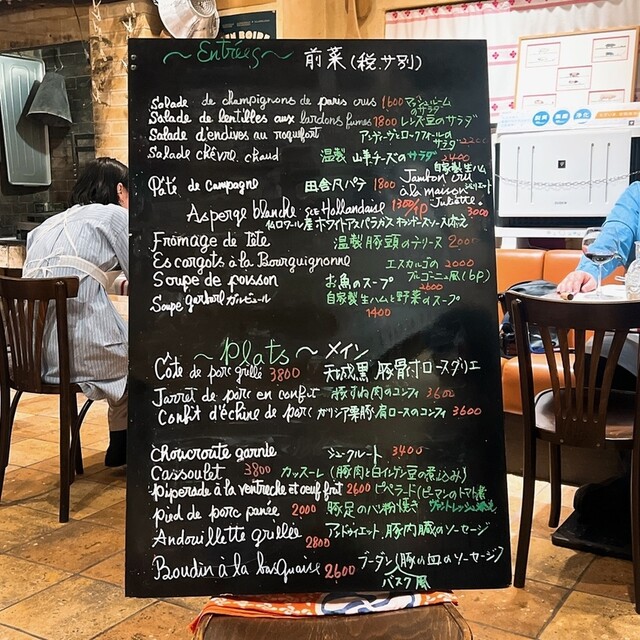 ~Entrées~ 前菜 (税.サ別)
Salade de champignons de paris crus 1600 マッシュルームのサラダ
Salade de lentilles aux lardons fumes 1800 レンズ豆のサラダ
Salade d'endives au roquefort アンディーヴとロックフォールのサラダ 2200
Salade chêvre chaud 温製 山羊チーズのサラダ 2400
Pâté de Campagne 田舎风パテ 1800
自家製生ハム
Jambon cru à la maison
Juliette
3000
Asperge blanche sce Hollandaise 1300/1P
仏ロワール産 ホワイトアスパラガス オランデーズソース
Fromage de Tête 温製 豚頭のテリーヌ 2000
Escargots à la Bourguignonne エスカルゴの ブルゴーニュ風 (6P) 2000
Soupe de poisson お魚のスープ 2600
Soupe garbure ガルビュール 自家製生ハムと野菜のスープ
1400
~Plats~ メイン
Côte de porc grillé 3800 天城黒豚骨付ロースグリエ
Jarret de porc en confit 豚すね肉のコンフィ 3600
Confit d'échine de porc ガリシア栗豚 肩ロースのコンフィ 3600
Choucroute garnie シュークルート 3400
Cassoulet 3800 カッスーレ (豚肉と白インゲン豆の煮込み)
Piperade à la ventreche et oeuf frit 2600 ピペラード(ピーマンのトマト煮
Pied de porc panée 2000 豚足のパン粉焼き
Andouillette grillée 2800 アンドゥイエット 豚内臓のソーセージ
Boudin à la basquaise 2600 ブーダン(豚の血のソーセージ)
バスク風